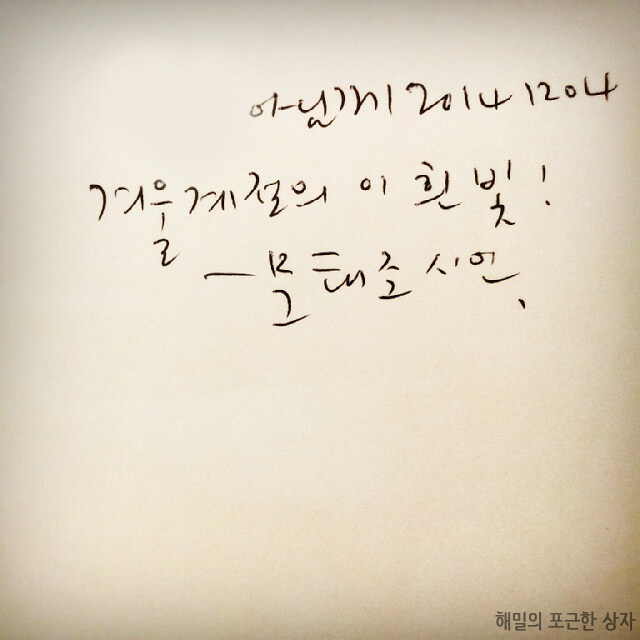 아님께 20141204
겨울 계절의 이 흰 빛!
— 문태준 시인.
해밀의 포근한 상자